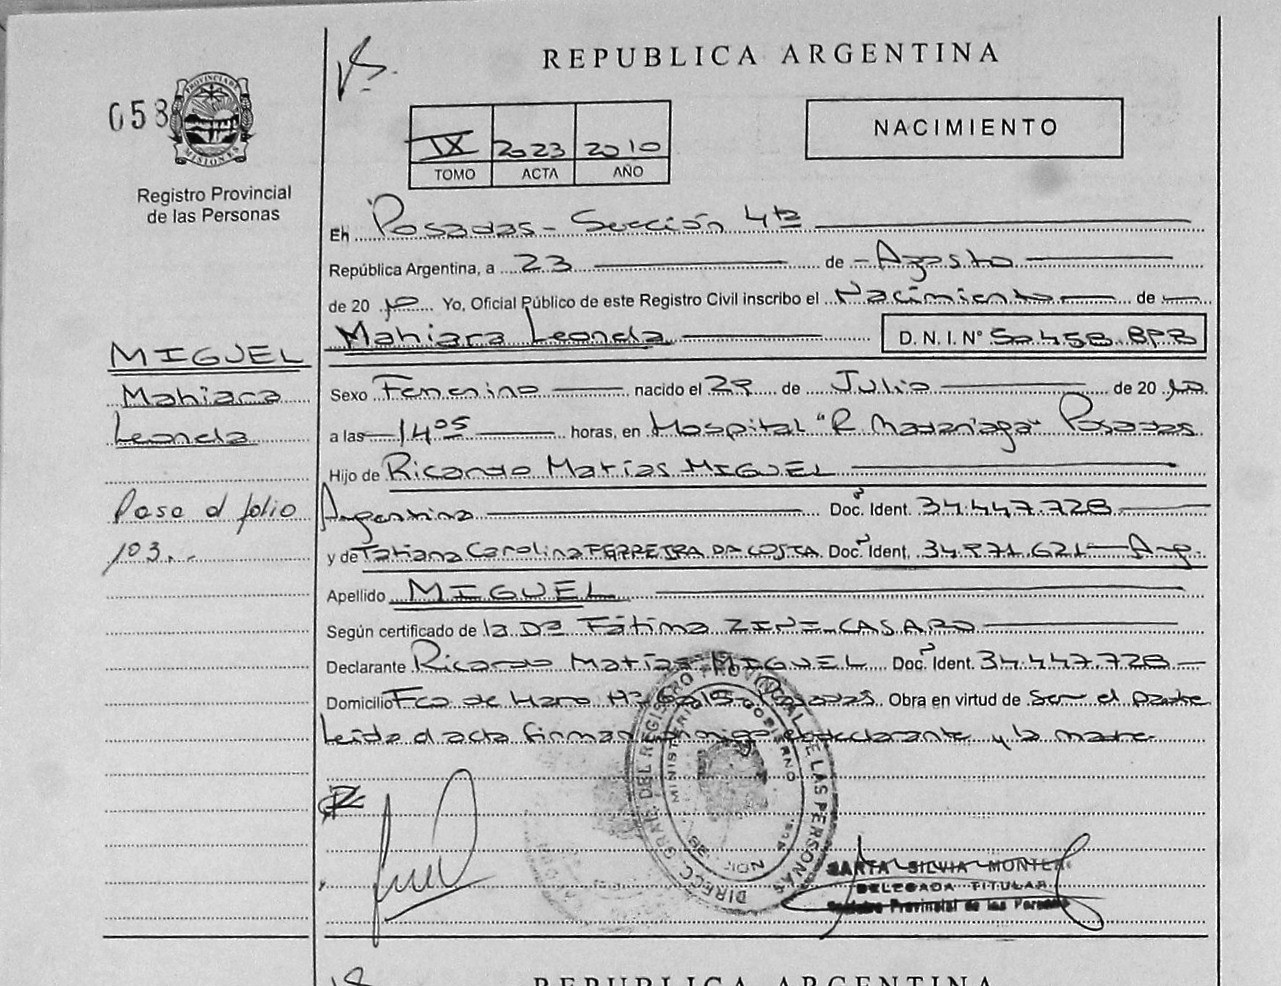 REPUBLICA ARGENTINA
058
PROVINCIA DE
MISIONES
Registro Provincial
de las Personas
IX 2023 2010
TOMO ACTA AÑO
NACIMIENTO
En Posadas - Sección 4ta
República Argentina, a 23 de - Agosto
de 20 10 Yo, Oficial Público de este Registro Civil inscribo el Nacimiento de
Mahiara Leonela D. N. I. N°
MIGUEL
Mahiara
Leonela
Paso al folio
103
Sexo Femenino nacido el 29 de Julio de 20 10
a las 14 05 horas, en Hospital "R. Madariaga" Posadas
Hijo de Ricardo Matías MIGUEL
Argentino Doc. Ident. 34.447.728
y de Tatiana Carolina FERREIRA DA COSTA Doc. Ident. Arg.
Apellido MIGUEL
Según certificado de la Dra Fátima ZINI CASARO
Declarante Ricardo Matías MIGUEL Doc. Ident. 34.447.728
Domicilio Fco de Haro Posadas Obra en virtud de ser el padre
Leida el acta firman conmigo el declarante y la madre
DIRECC. GRAL. DEL REGISTRO PROVINCIAL DE LAS PERSONAS
MINISTERIO GOBIERNO
SECCION
SILVIA
DELEGADA TITULAR
Registro Provincial de las Personas
REPUBLICA ARGENTINA